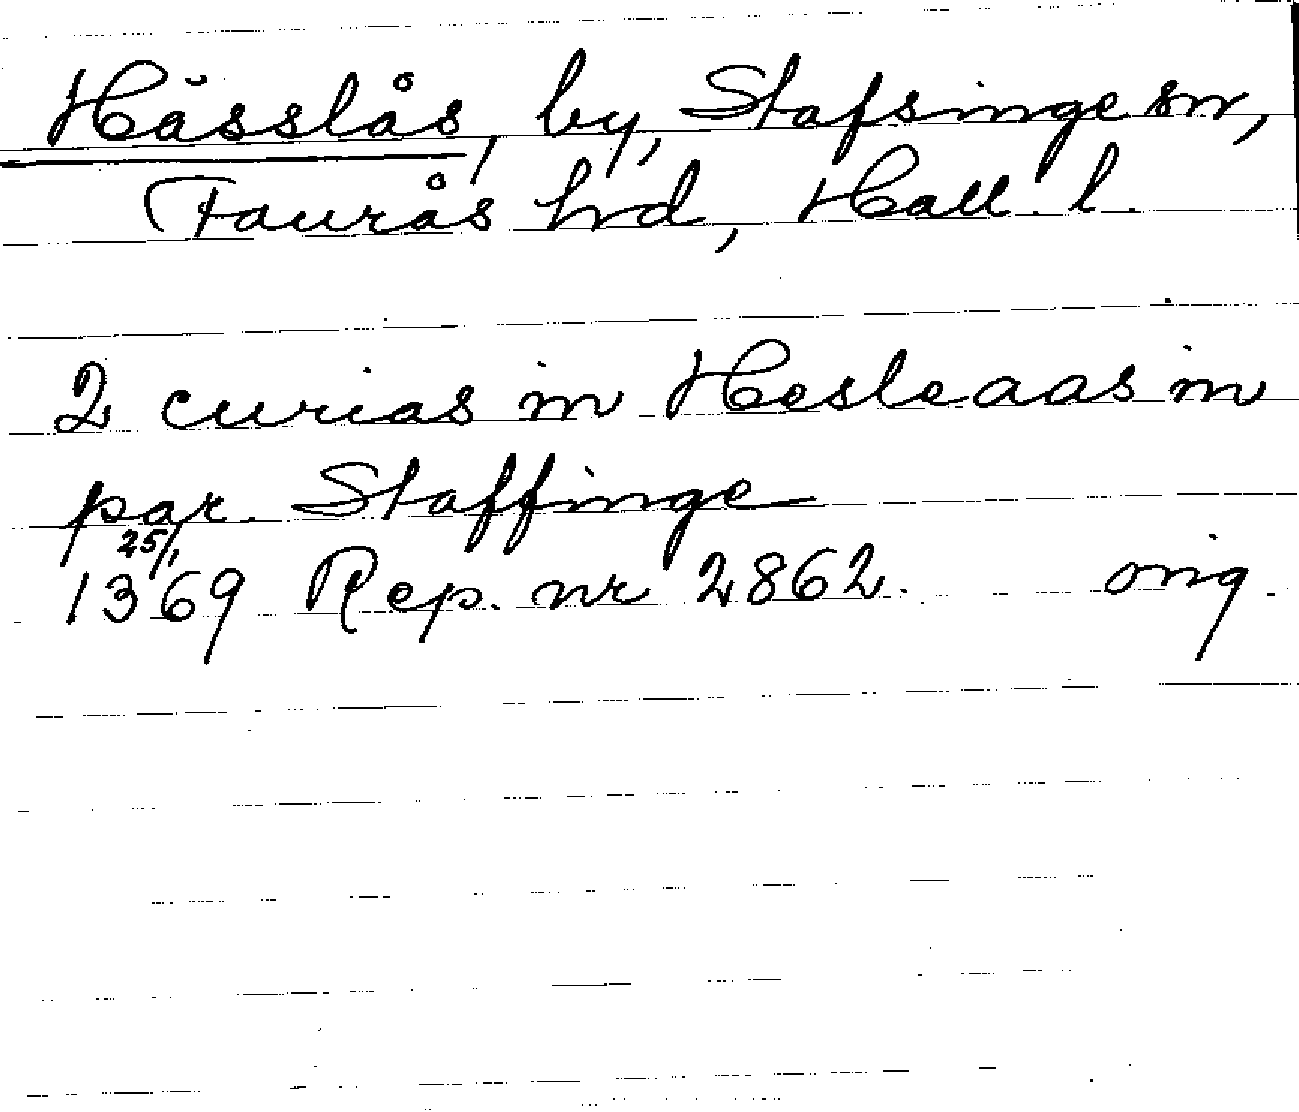 Hässlås, by, Stafsinge sn,
Faurås hd, Hall. l.
2 curias in Hesleaas in
par. Staffinge
1369 25/1 Rep. nr 2862. orig.